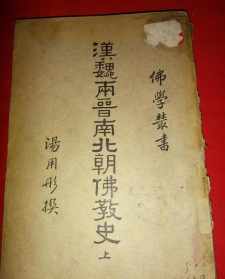 佛學叢書
漢魏兩晉南北朝佛教史 上
湯用彤撰